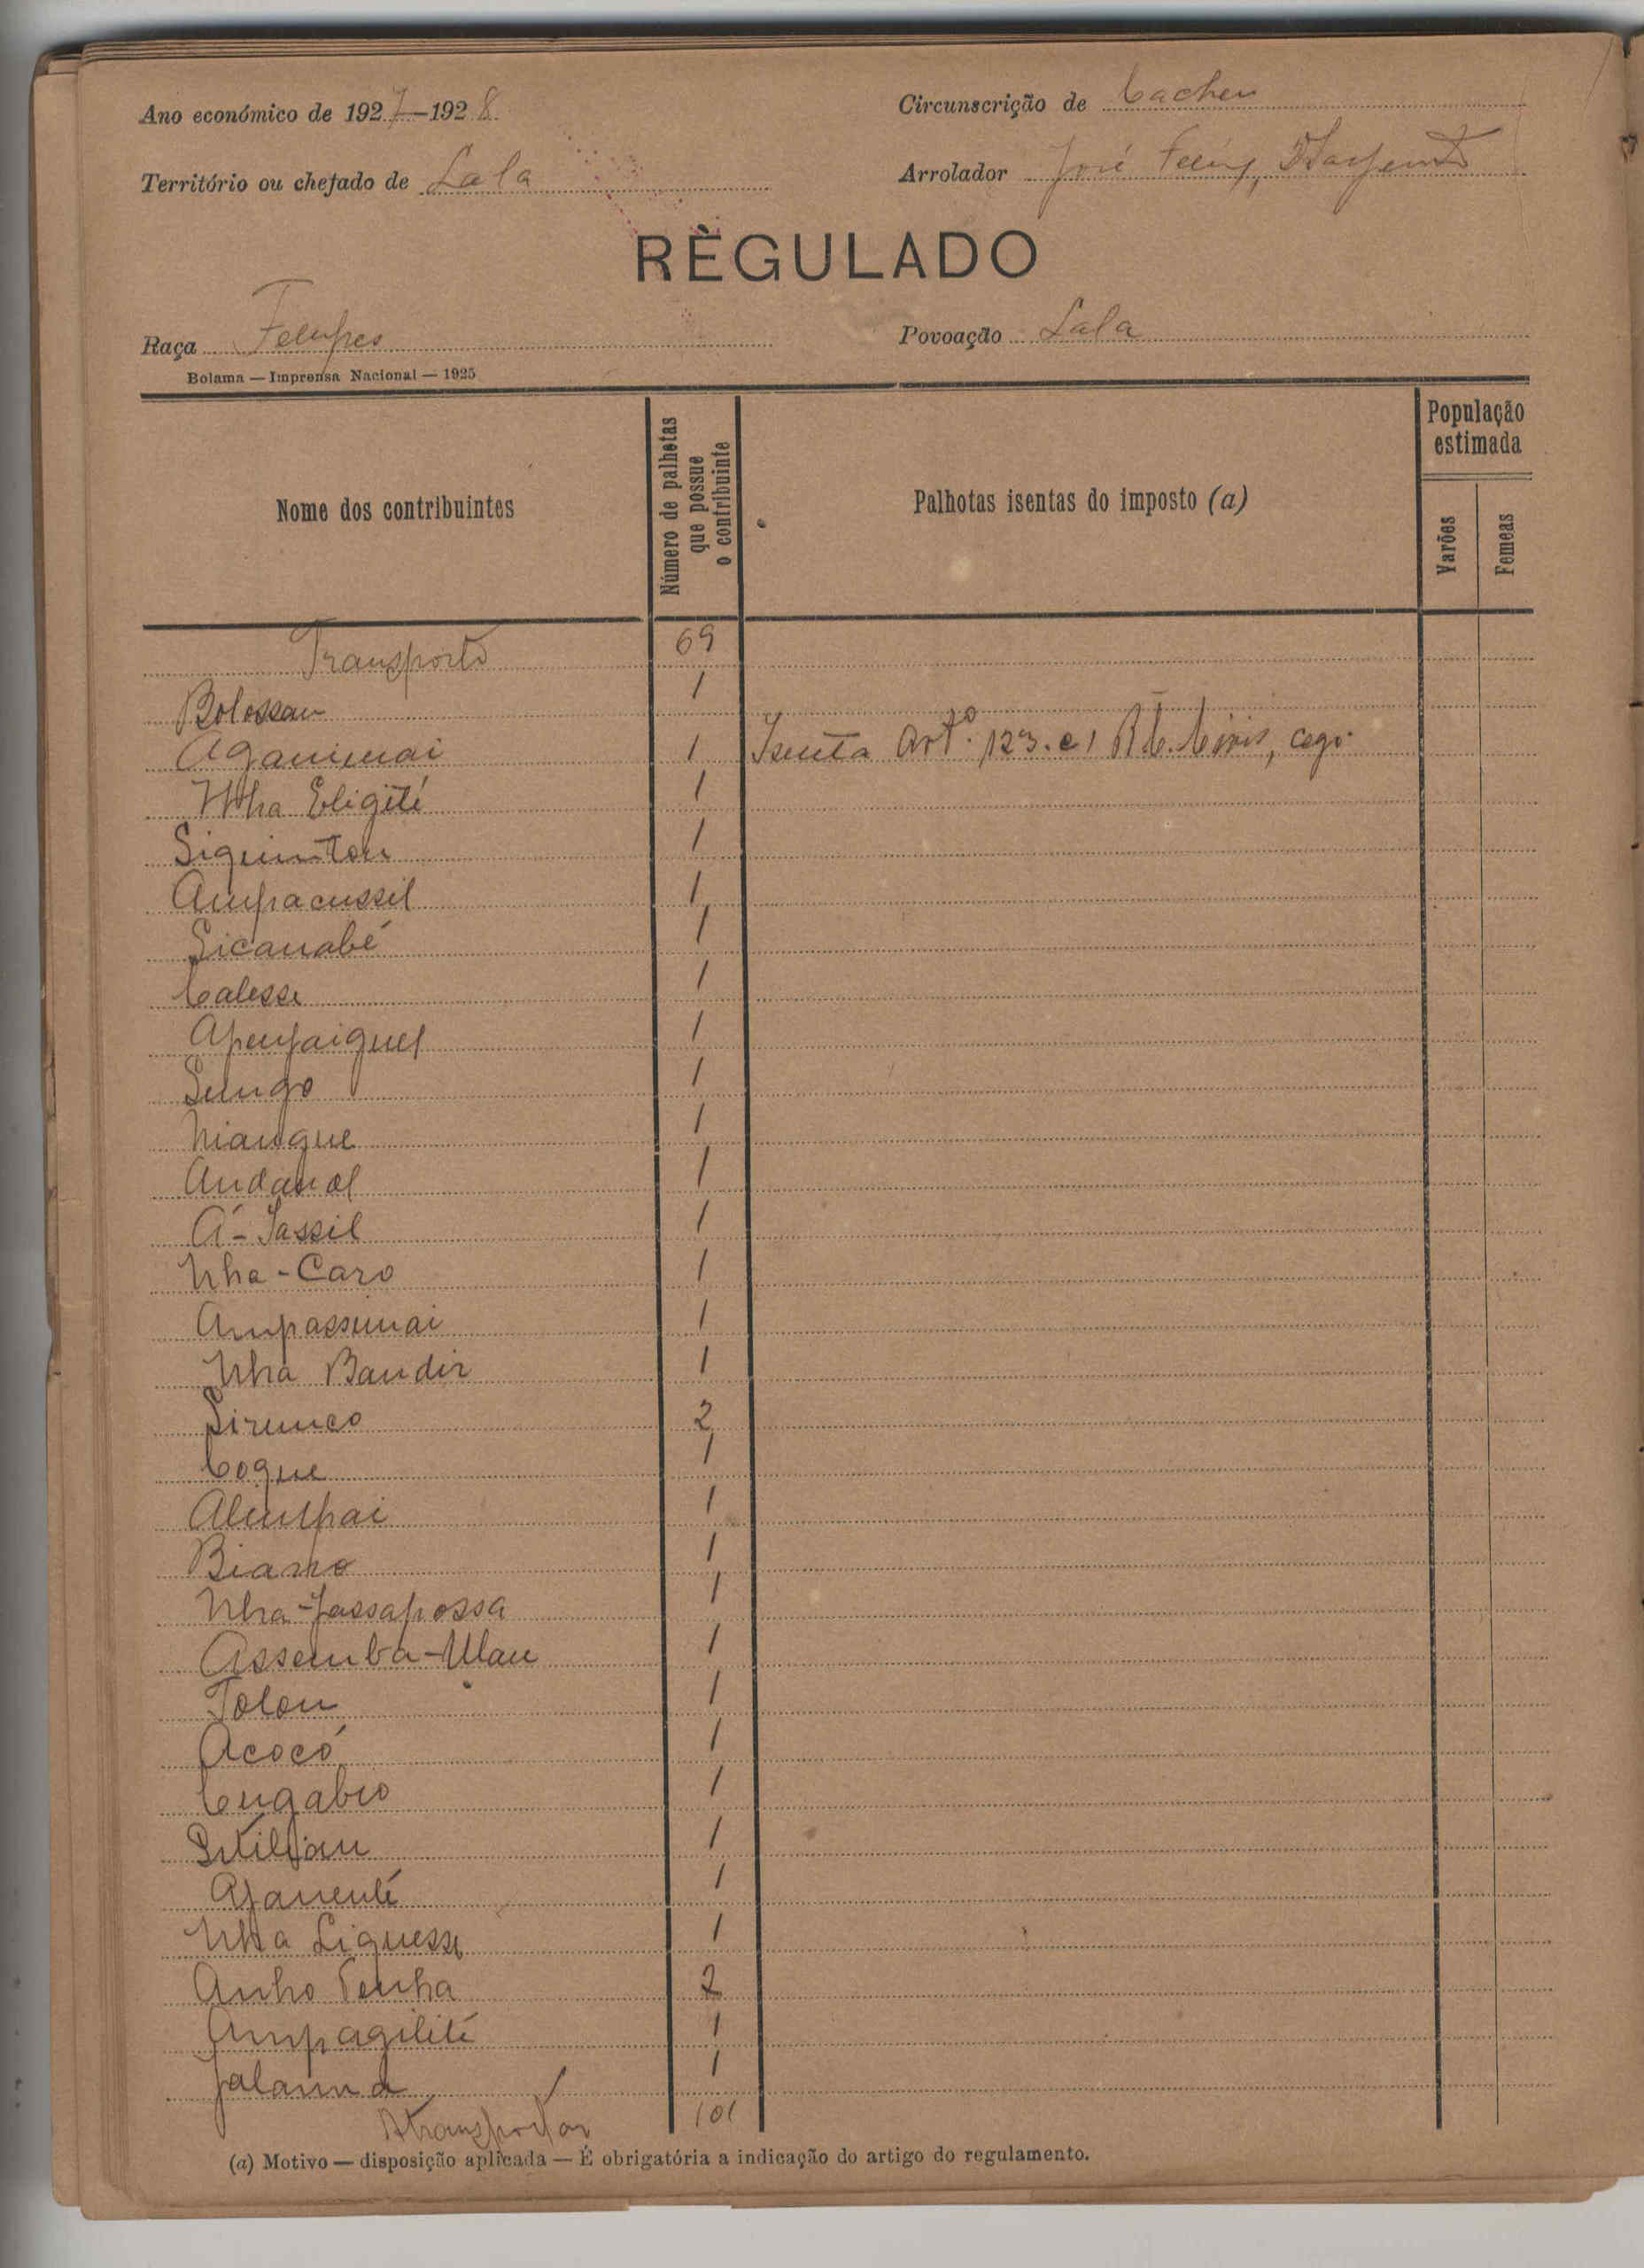 Ano económico de 1927—1928
Circunscrição de Cacheu
Território ou chefado de Lala
Arrolador José
RÈGULADO
Raça Felupes
Povoação Lala
Bolama — Imprensa Nacional — 1925
Nome dos contribuintes
Número de palhotas que possue o contribuinte
Palhotas isentas do imposto (a)
População estimada
Varões
Femeas
Transporte 69
Bolossau 1
Aganimai 1 Isenta Artº. 123. cego.
Nha Eligité 1
Siquinton 1
Ampacussil 1
Sicanabé 1
Calesse 1
1
Sungo 1
Niangue 1
Andanol 1
A-Jassil 1
Nha-Caro 1
Ampassimai 1
Nha Baudir 1
Sirunco 2
Coque 1
Alumpai 1
Biamo 1
Nha-Jassapossa 1
Assemba-Ulau 1
Tolou 1
Acocó 1
Cugabio 1
1
1
Nha Liguesse 1
Anho Penha 2
Ampagilité 1
Jalamna 1
A transportar 101
(a) Motivo — disposição aplicada — É obrigatória a indicação do artigo do regulamento.